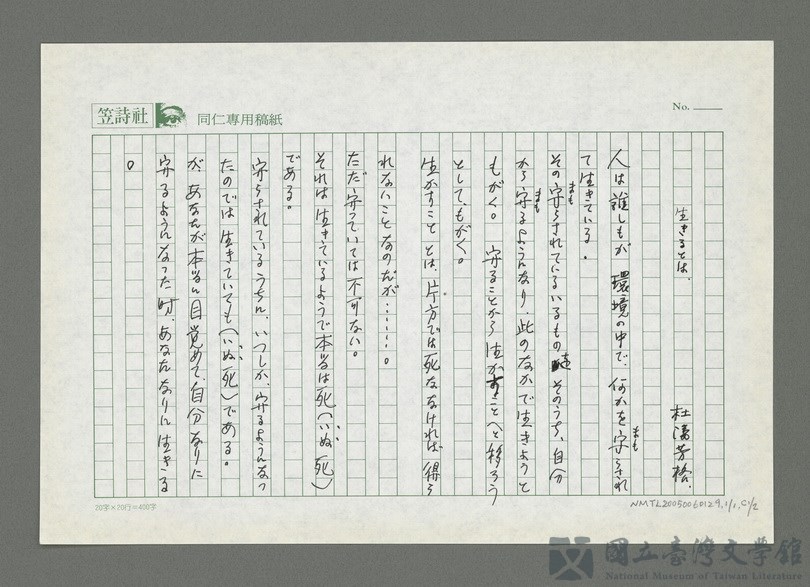 笠詩社
同仁専用稿紙
No.
生きるとは、
杜潘芳格
人は誰しもが 環境の中で、何かを守られ
まも
て生きている。
その守らされているいるもの そのうち、自分
まも
から守るようになり、此のなかで生きようと
まも
もがく。 守ることから 生かすことへと移ろう
として、もがく。
生かすこととは、片方では死ななければ 得ら
れないことなのだが……。
ただ守っていては不可ない。
それは 生きているようで本当は死（いぬ死）
である。
守らされているうちに、いつしか、守るようになっ
たのでは 生きていても（いぬ死）である。
が、あなたが本当に目覚めて、自分なりに
守るようになった時、あなたなりに 生きる
。
20字×20行=400字
NMTL20050060129,1/1,C1/2
國立臺灣文學館
National Museum of Taiwan Literature